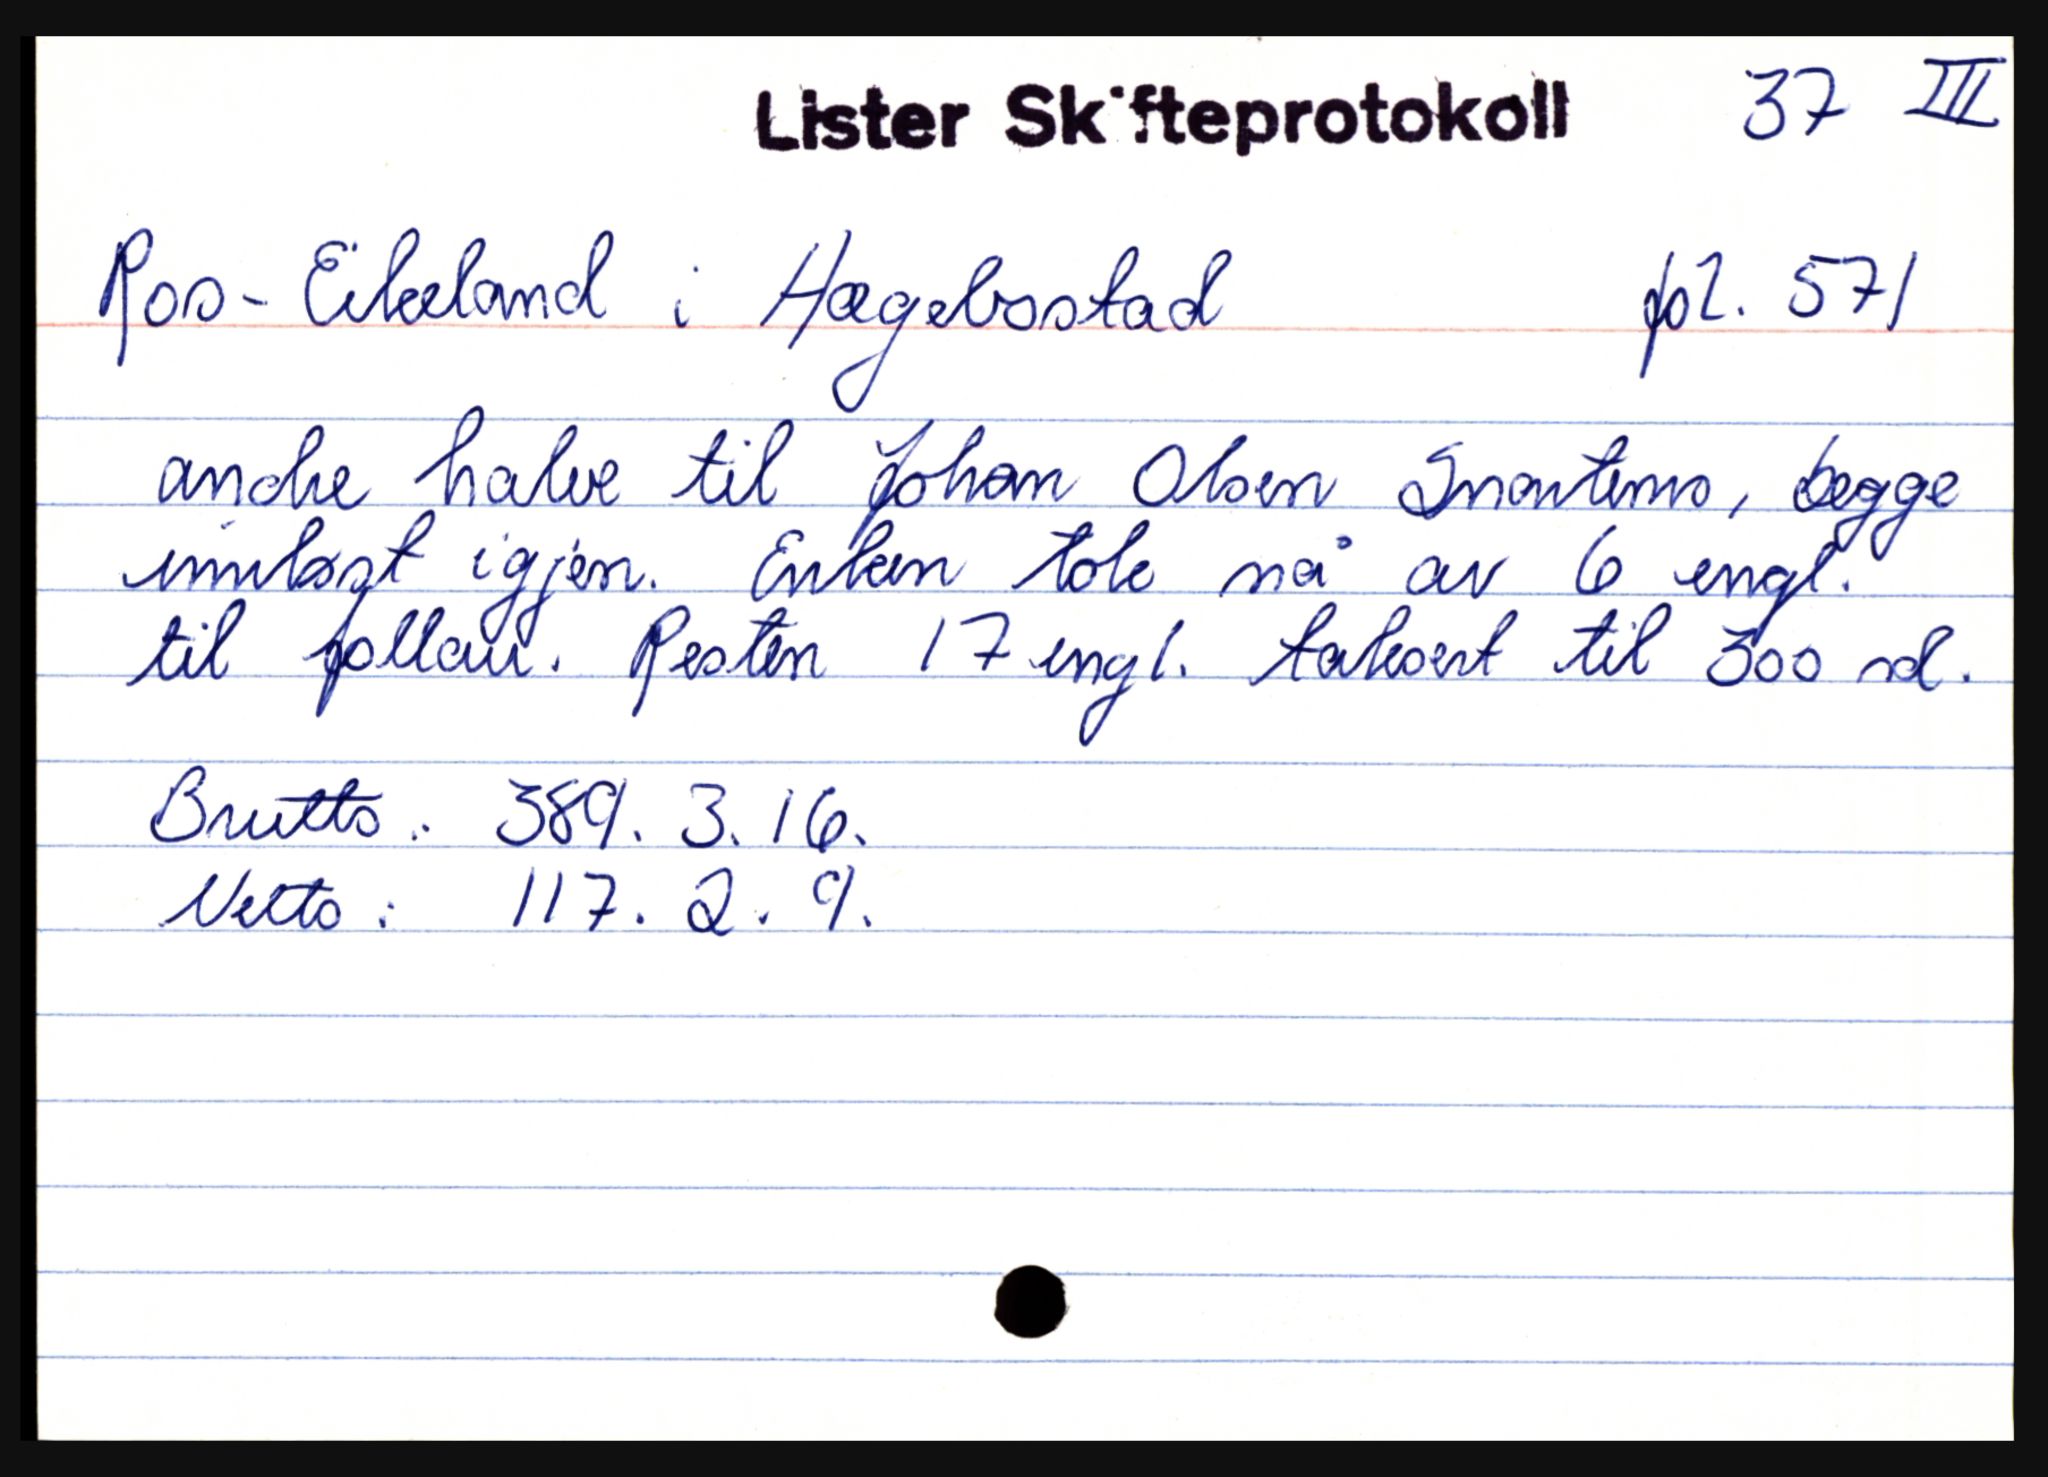 Lister Skifteprotokoll 37 III
Ros-Eikeland i Hægebostad fol. 571
andre halve til Johan Olsen Snartemo, begge
innløst igjen. Enken tok nå av 6 engl.
til follau. Resten 17 engl. taksert til 300 rd.
Brutto: 389. 3. 16.
Netto: 117. 2. 9.